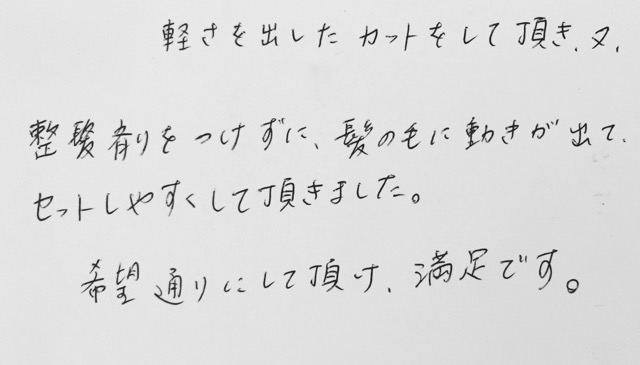 軽さを出したカットをして頂き、又、
整髪剤をつけずに、髪の毛に動きが出て、
セットしやすくして頂きました。
希望通りにして頂け、満足です。